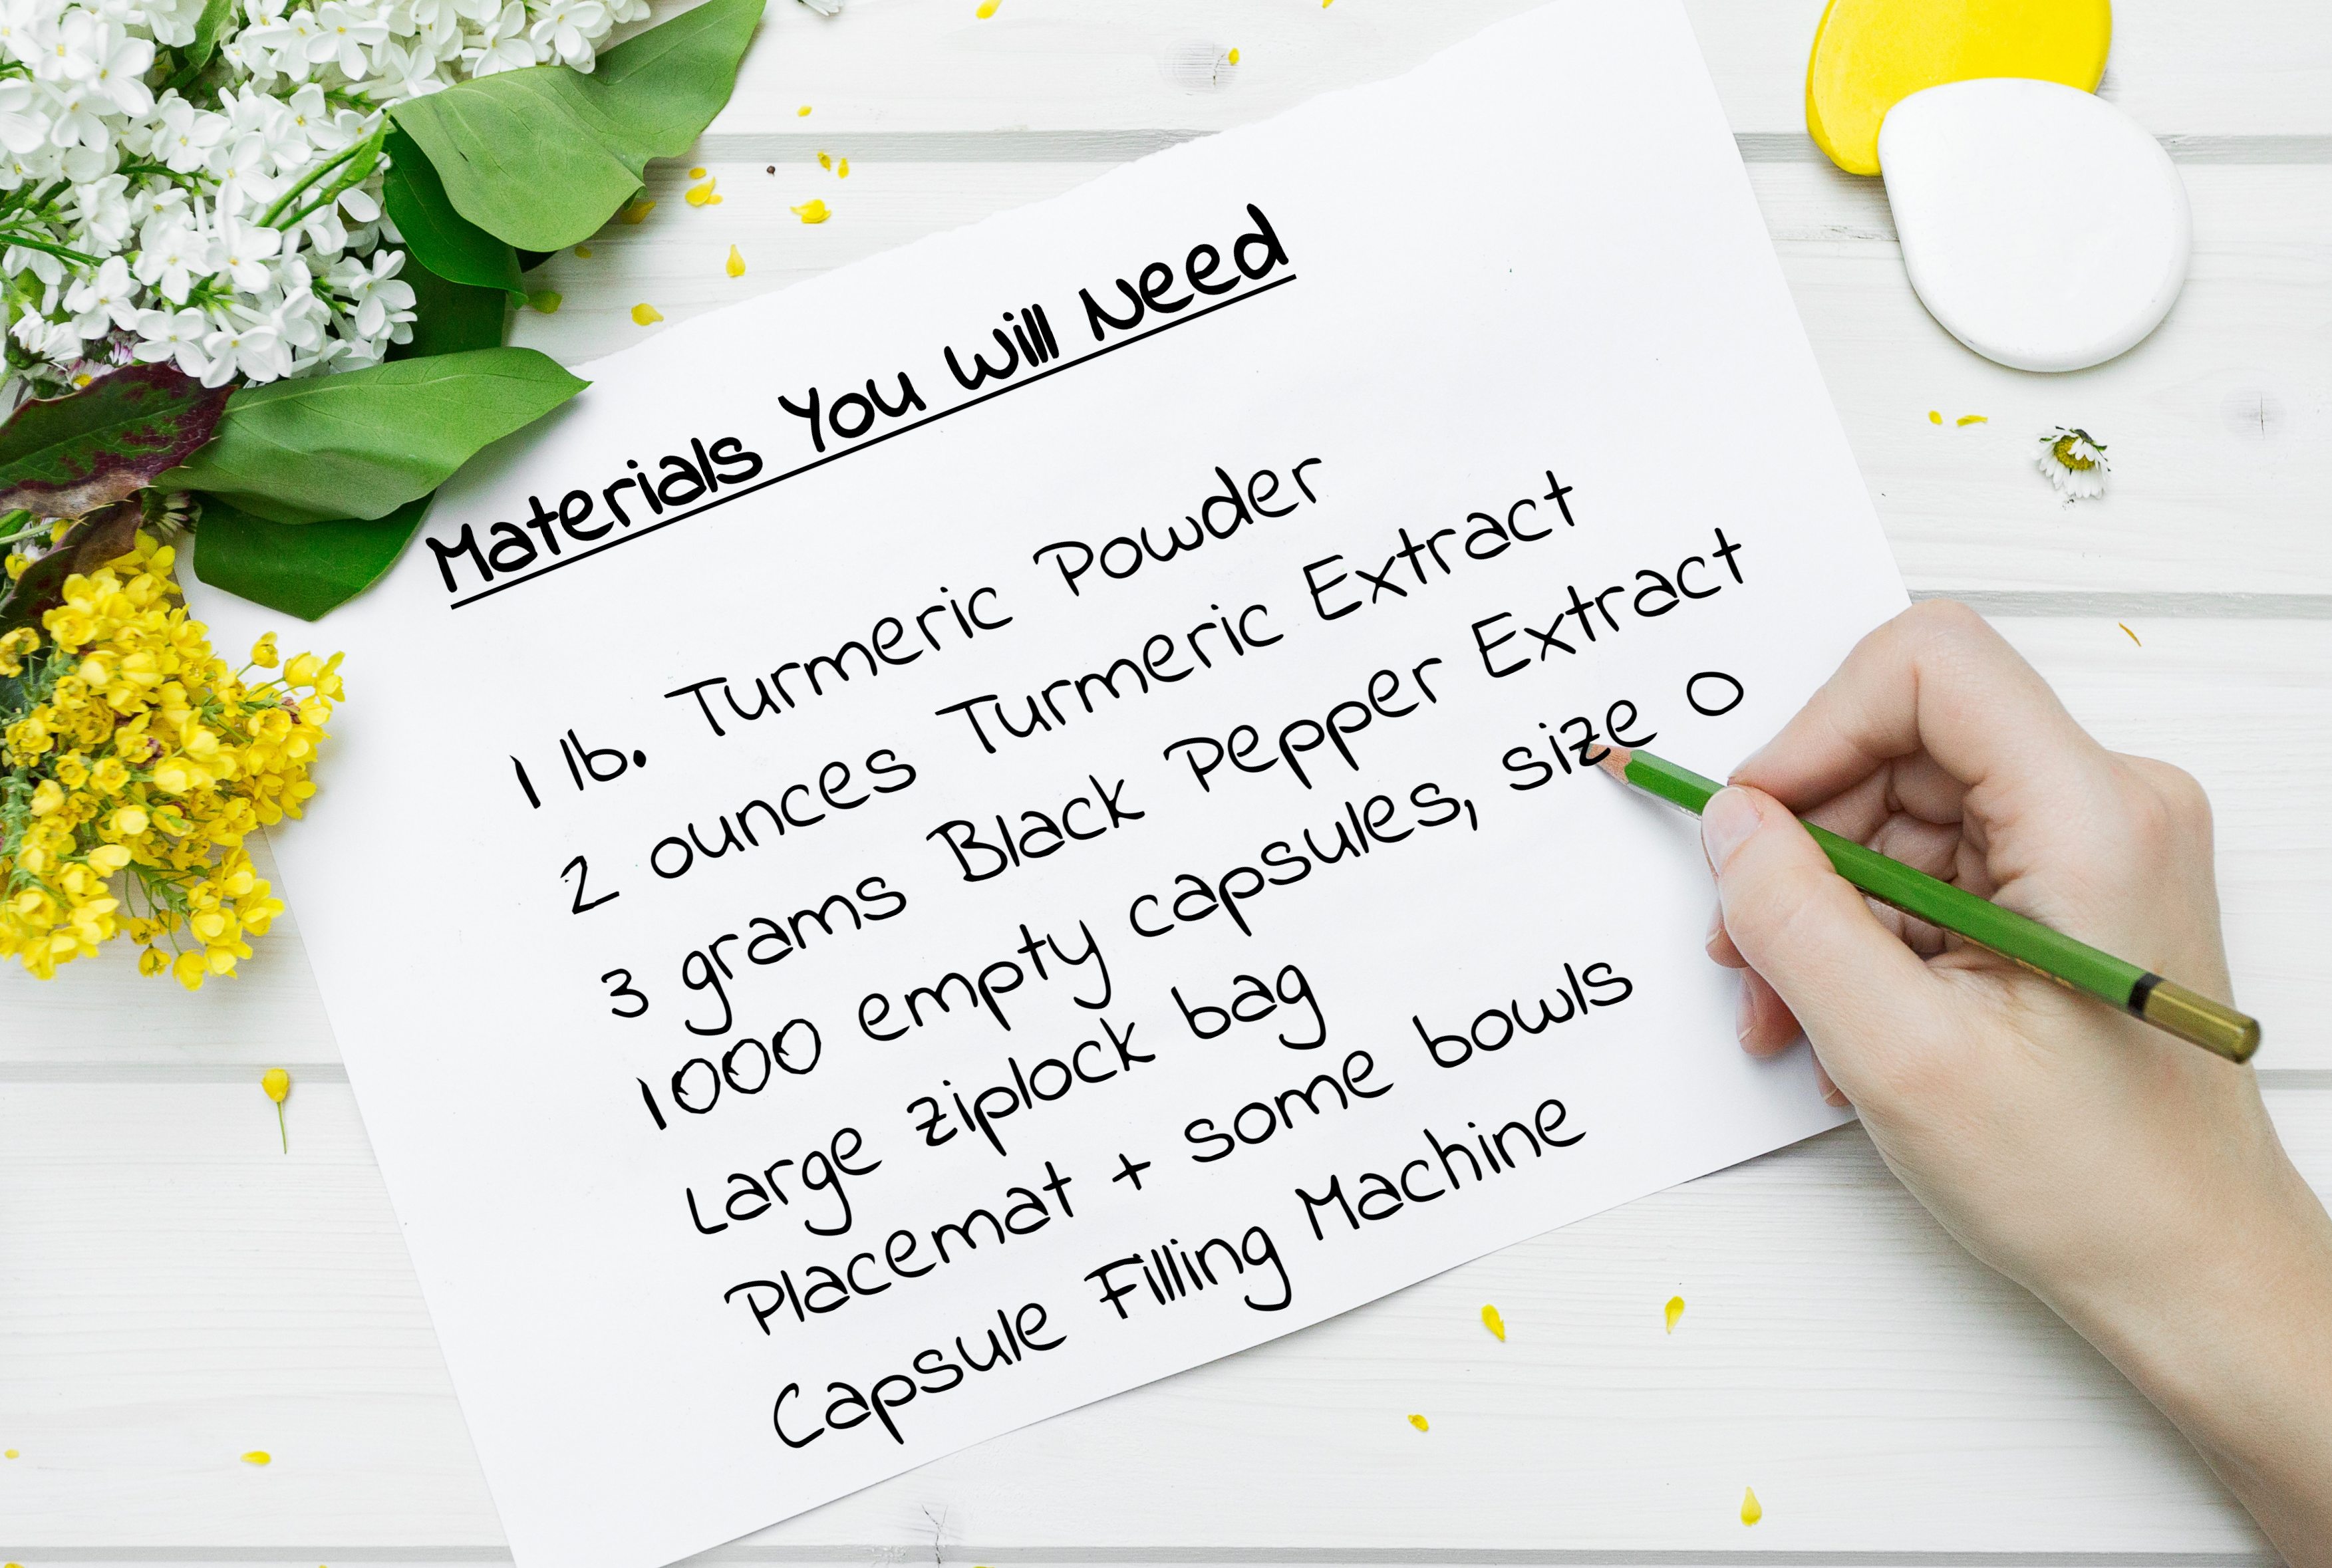 Materials You Will Need
1 lb. Turmeric Powder
2 ounces Turmeric Extract
3 grams Black Pepper Extract
1000 empty capsules, size 0
Large ziplock bag
Placemat + some bowls
Capsule Filling Machine